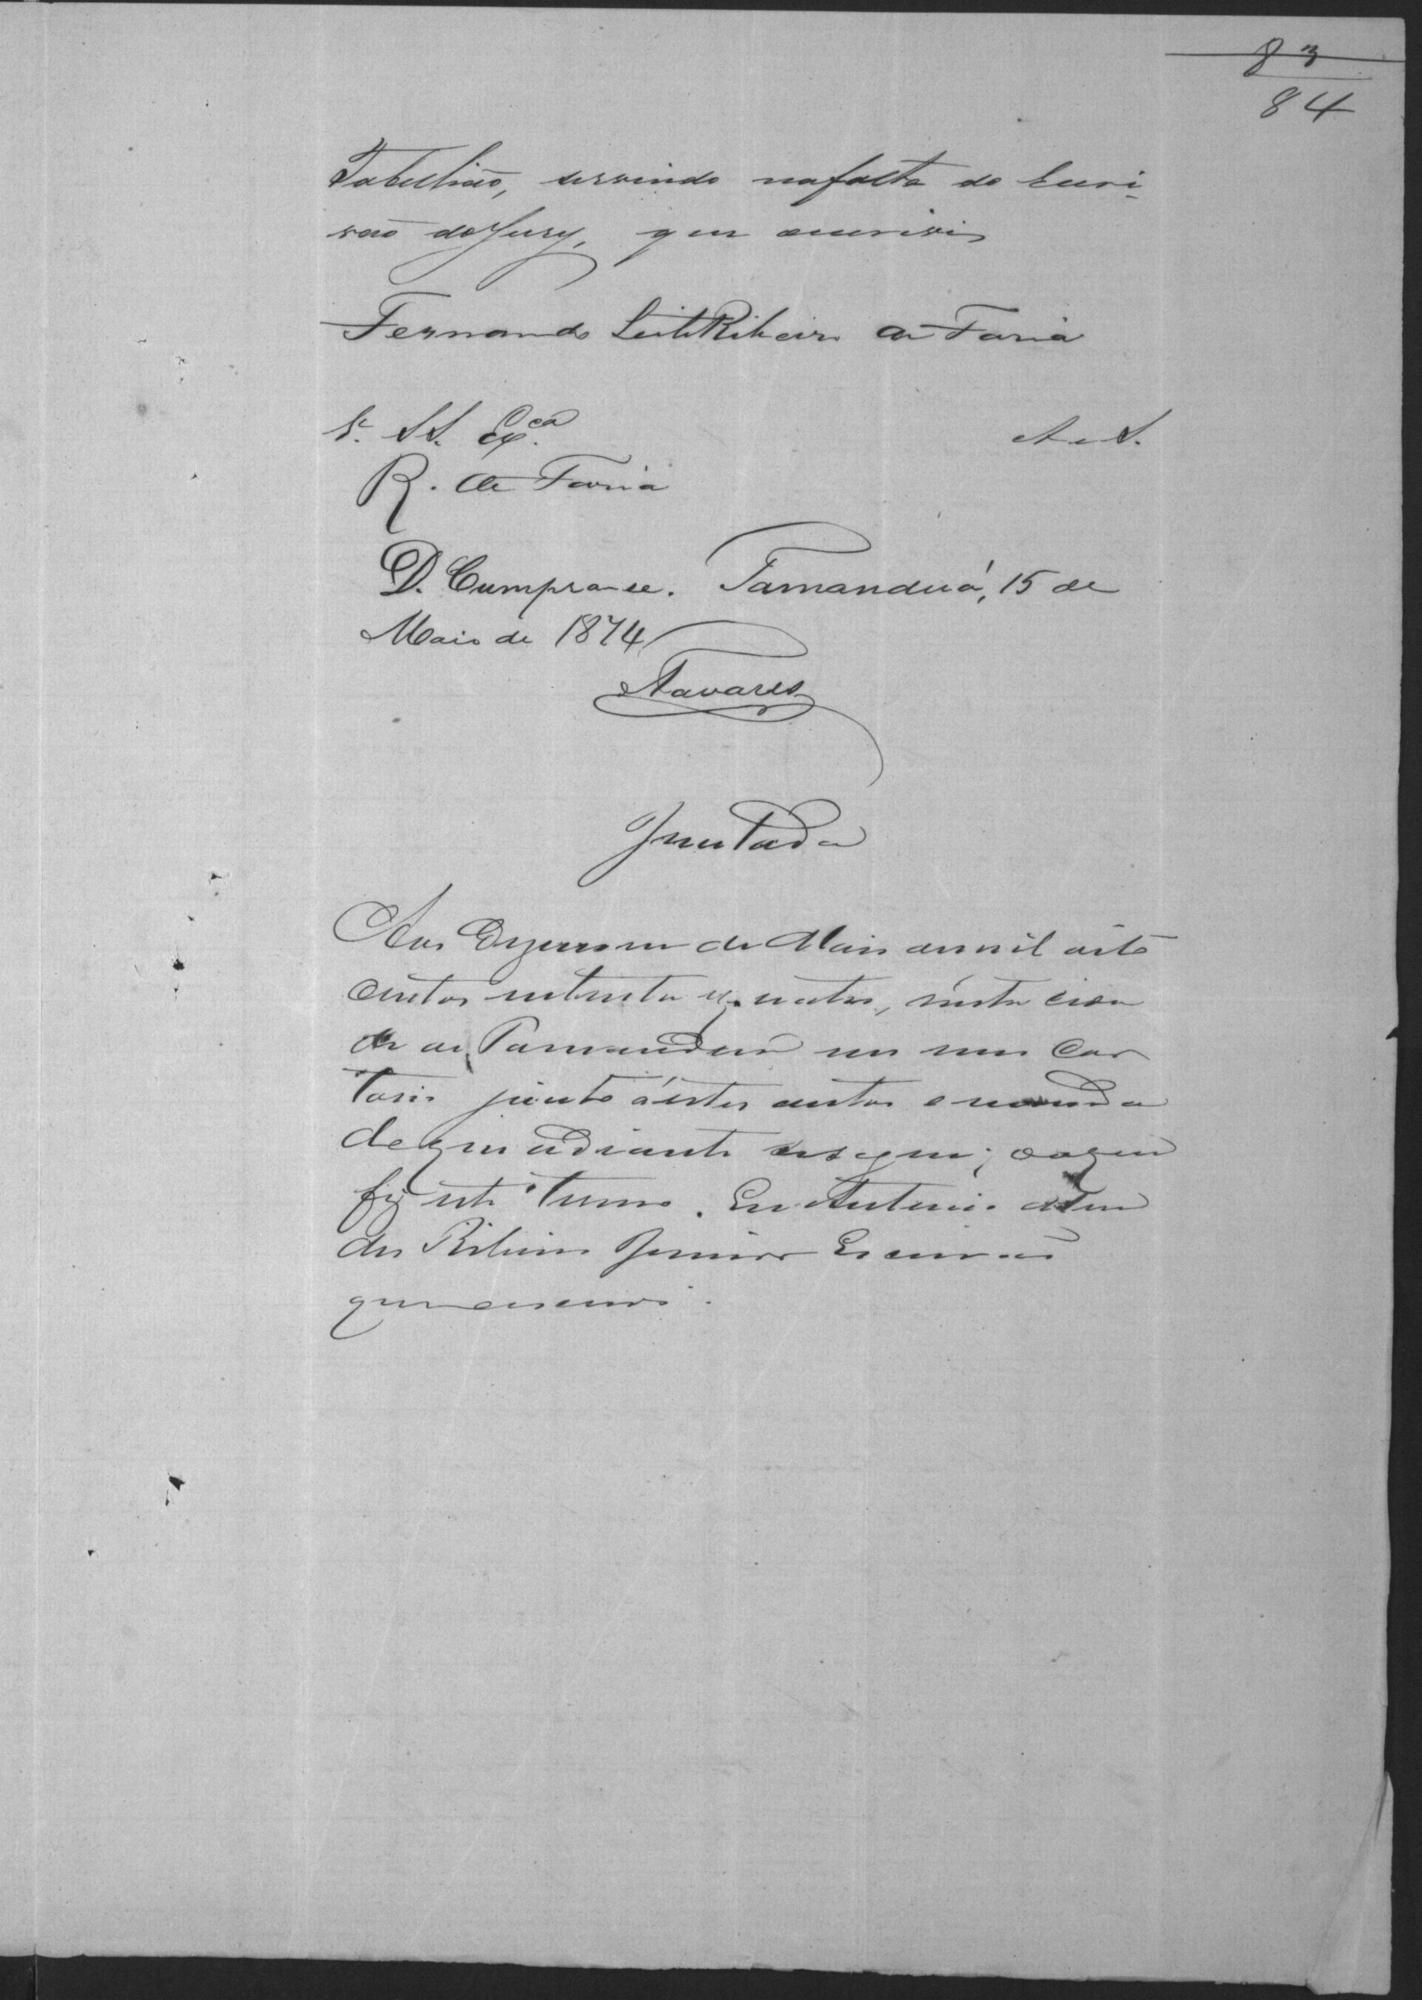 83
84
Tabellião, servindo na falta do Escri-
vão do Jury, que escrivi
Fernando Leite Ribeiro de Faria
S. SS. Ex.ca
R. de Faria
D. Cumpra-se. Tamanduá, 15 de
Maio de 1874
Tavares
Juntada
Aos de Maio de mil oito
centos setenta e quatro, nesta cida
de de Tamanduá em meu Car
torio junto á estes autos o manda
do que adiante se segue; do que
fiz este termo. Eu Antonio
des Ribeiro Junior Escrivão
que escrevi.